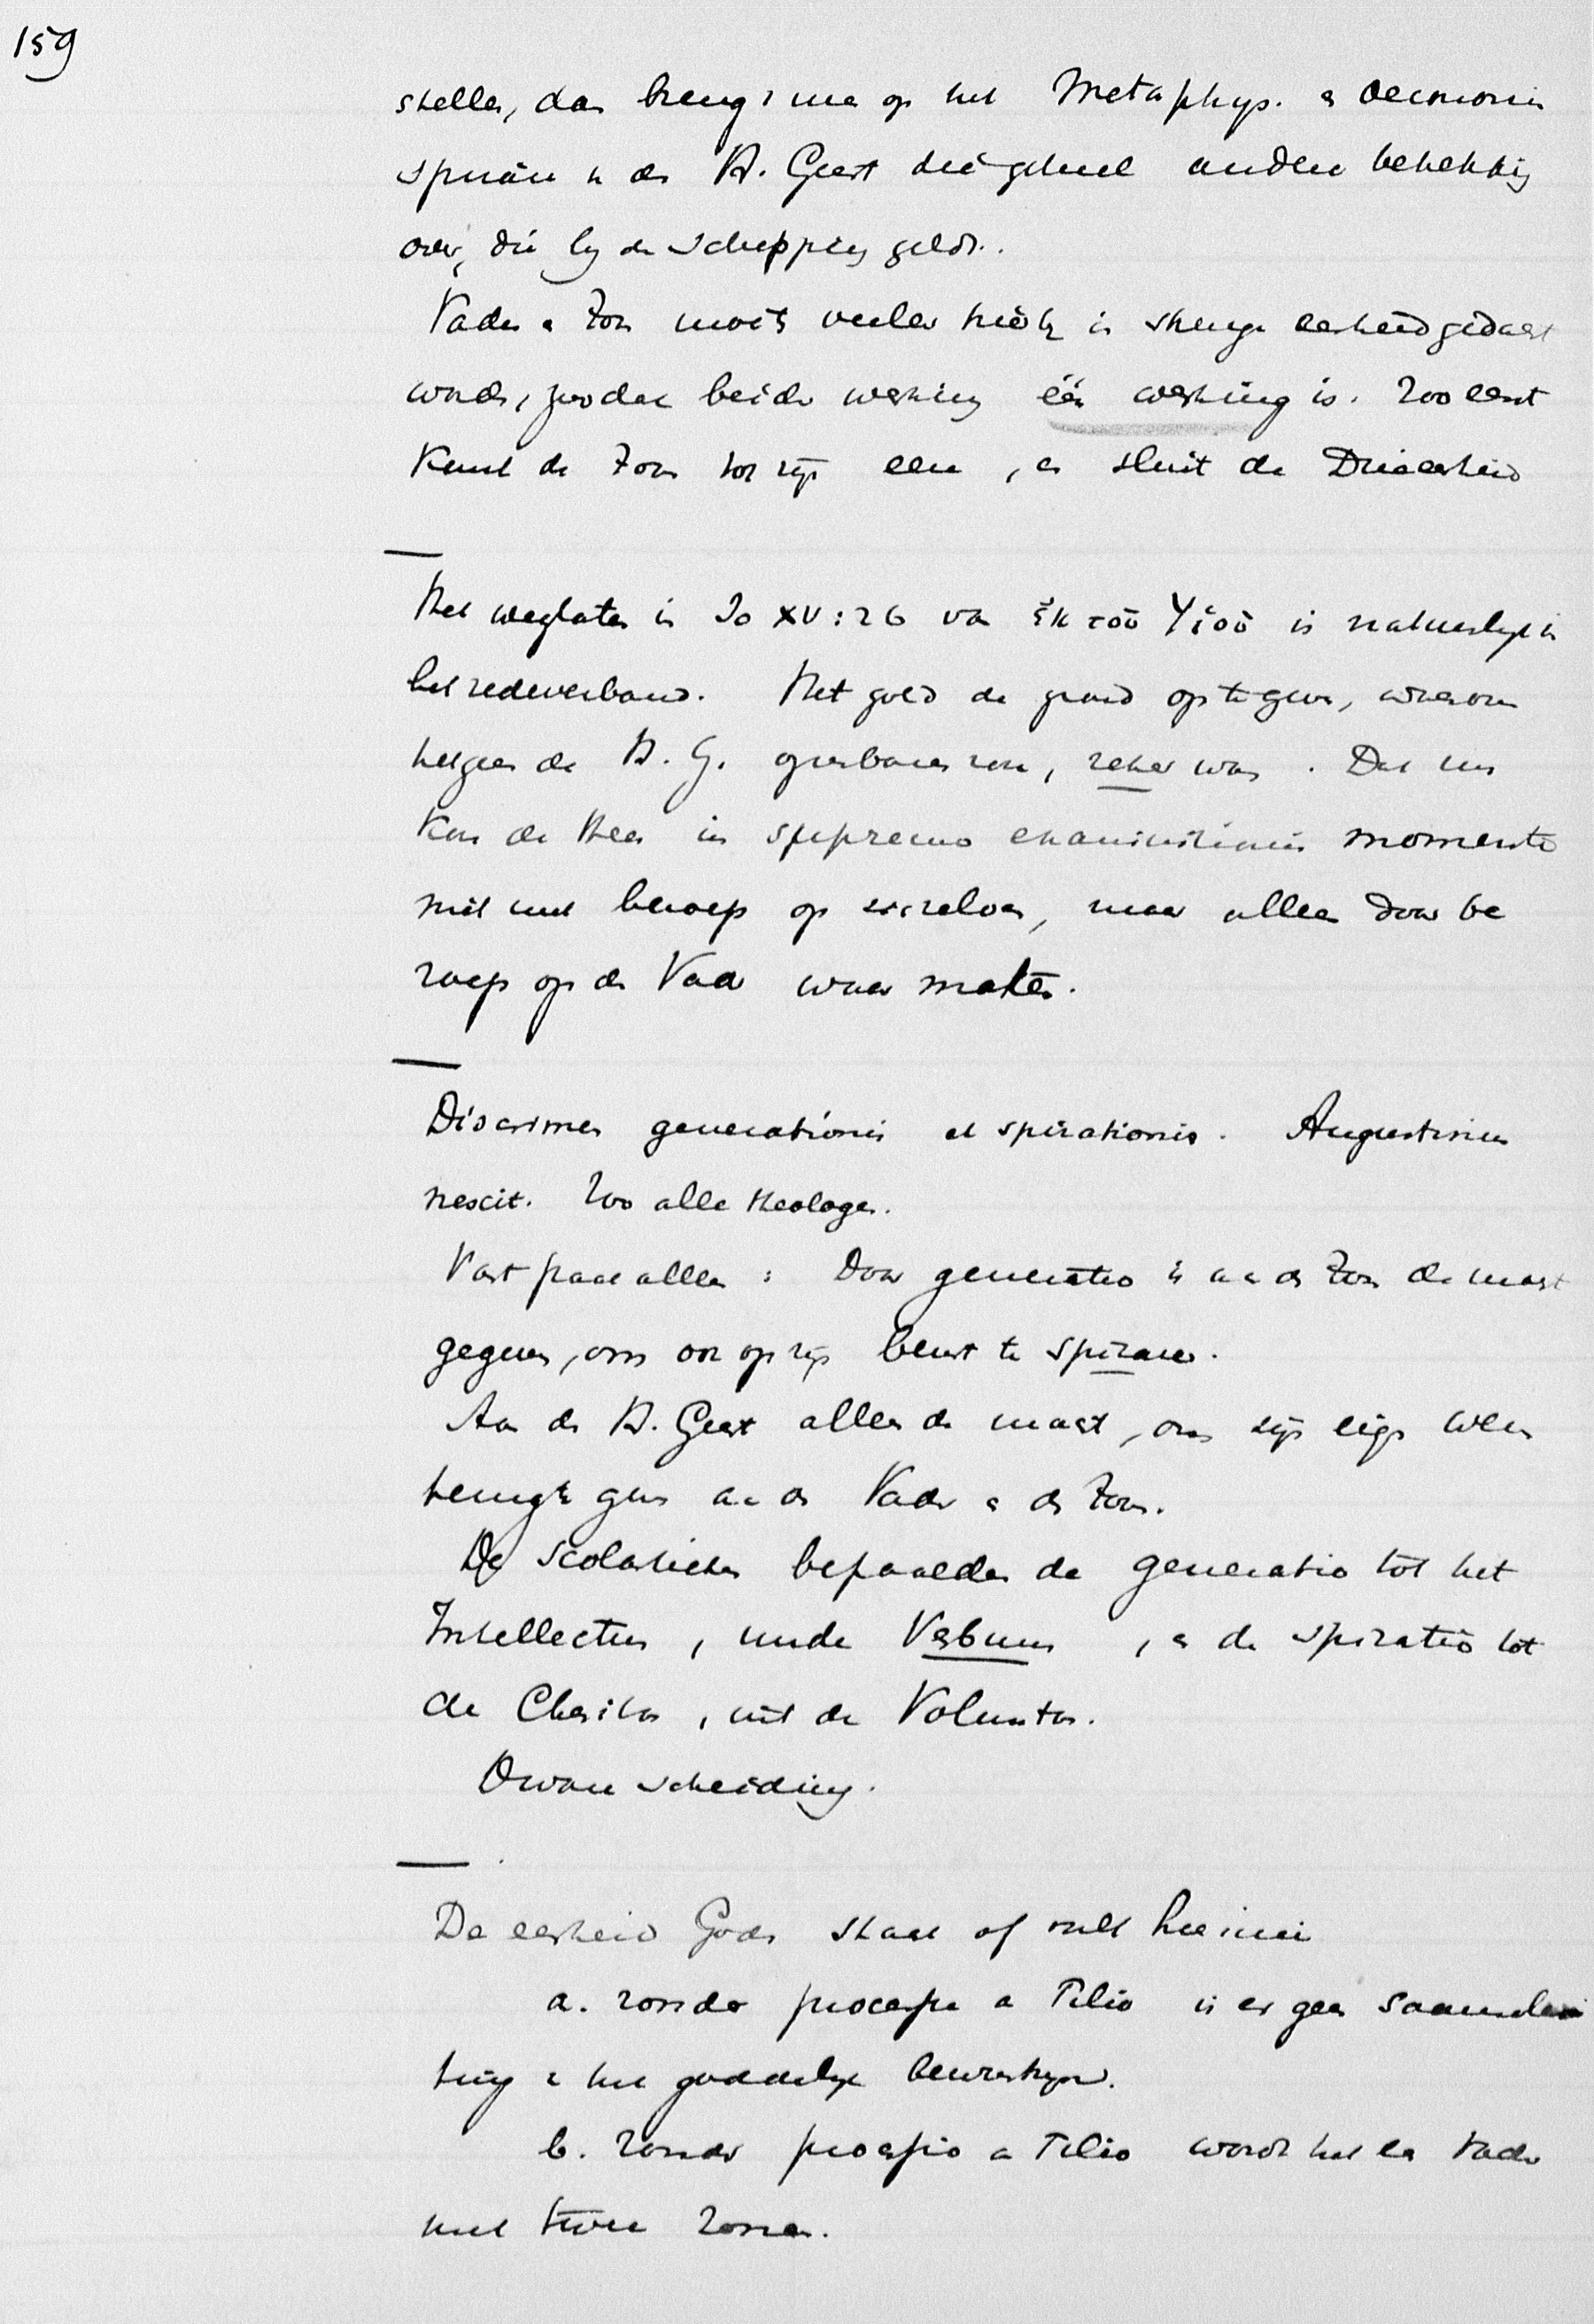 159
stellen, dan brengt men op het Metaphys. en oeconomische
spirare van den H. Geest die geheel andere betrekking
over, die bij de Schepping geldt.
Vader en Zoon moet veeleer hierbij in strenge eenheid gedacht
worden, zoodat beider werking één werking is. Zoo eerst
komt de Zoon tot zijn eere, en sluit de Drieeenheid
Het weglaten in Jo XV:26 van ἐκ τοῦ Υἱοῦ is natuurlijk in
het redeverband. Het gold de grond op te geven, waarom
hetgeen de H. G. openbaren zou, zeker was. Dat nu
kon de Heer in supremo exaninitionis momento
niet met beroep op zichzelven, maar alleen door be
roep op den Vader waar maken.
Discrimen generationis et spirationis. Augustinus
nescit. Zoo alle theologen.
Vast staat alleen: Door generatio is aan den Zoon de macht
gegeven, om ook op zijn beurt te spirare.
Aan den H. Geest alleen de macht, om zijn eigen wezen
terug te geven aan den Vader en den Zoon.
De Scolastieken bepaalden de generatio tot het
Intellectus, unde Verbum, en de spiratio tot
de Charitas, uit de Voluntas.
Dwaze scheiding.
De eenheid Gods staat of valt hiermee
a. zonder processie a Filio is er geen saamslui
ting in het goddelijk bewustzijn.
b. Zonder processio a Filio wordt het een Vader
met twee Zonen.